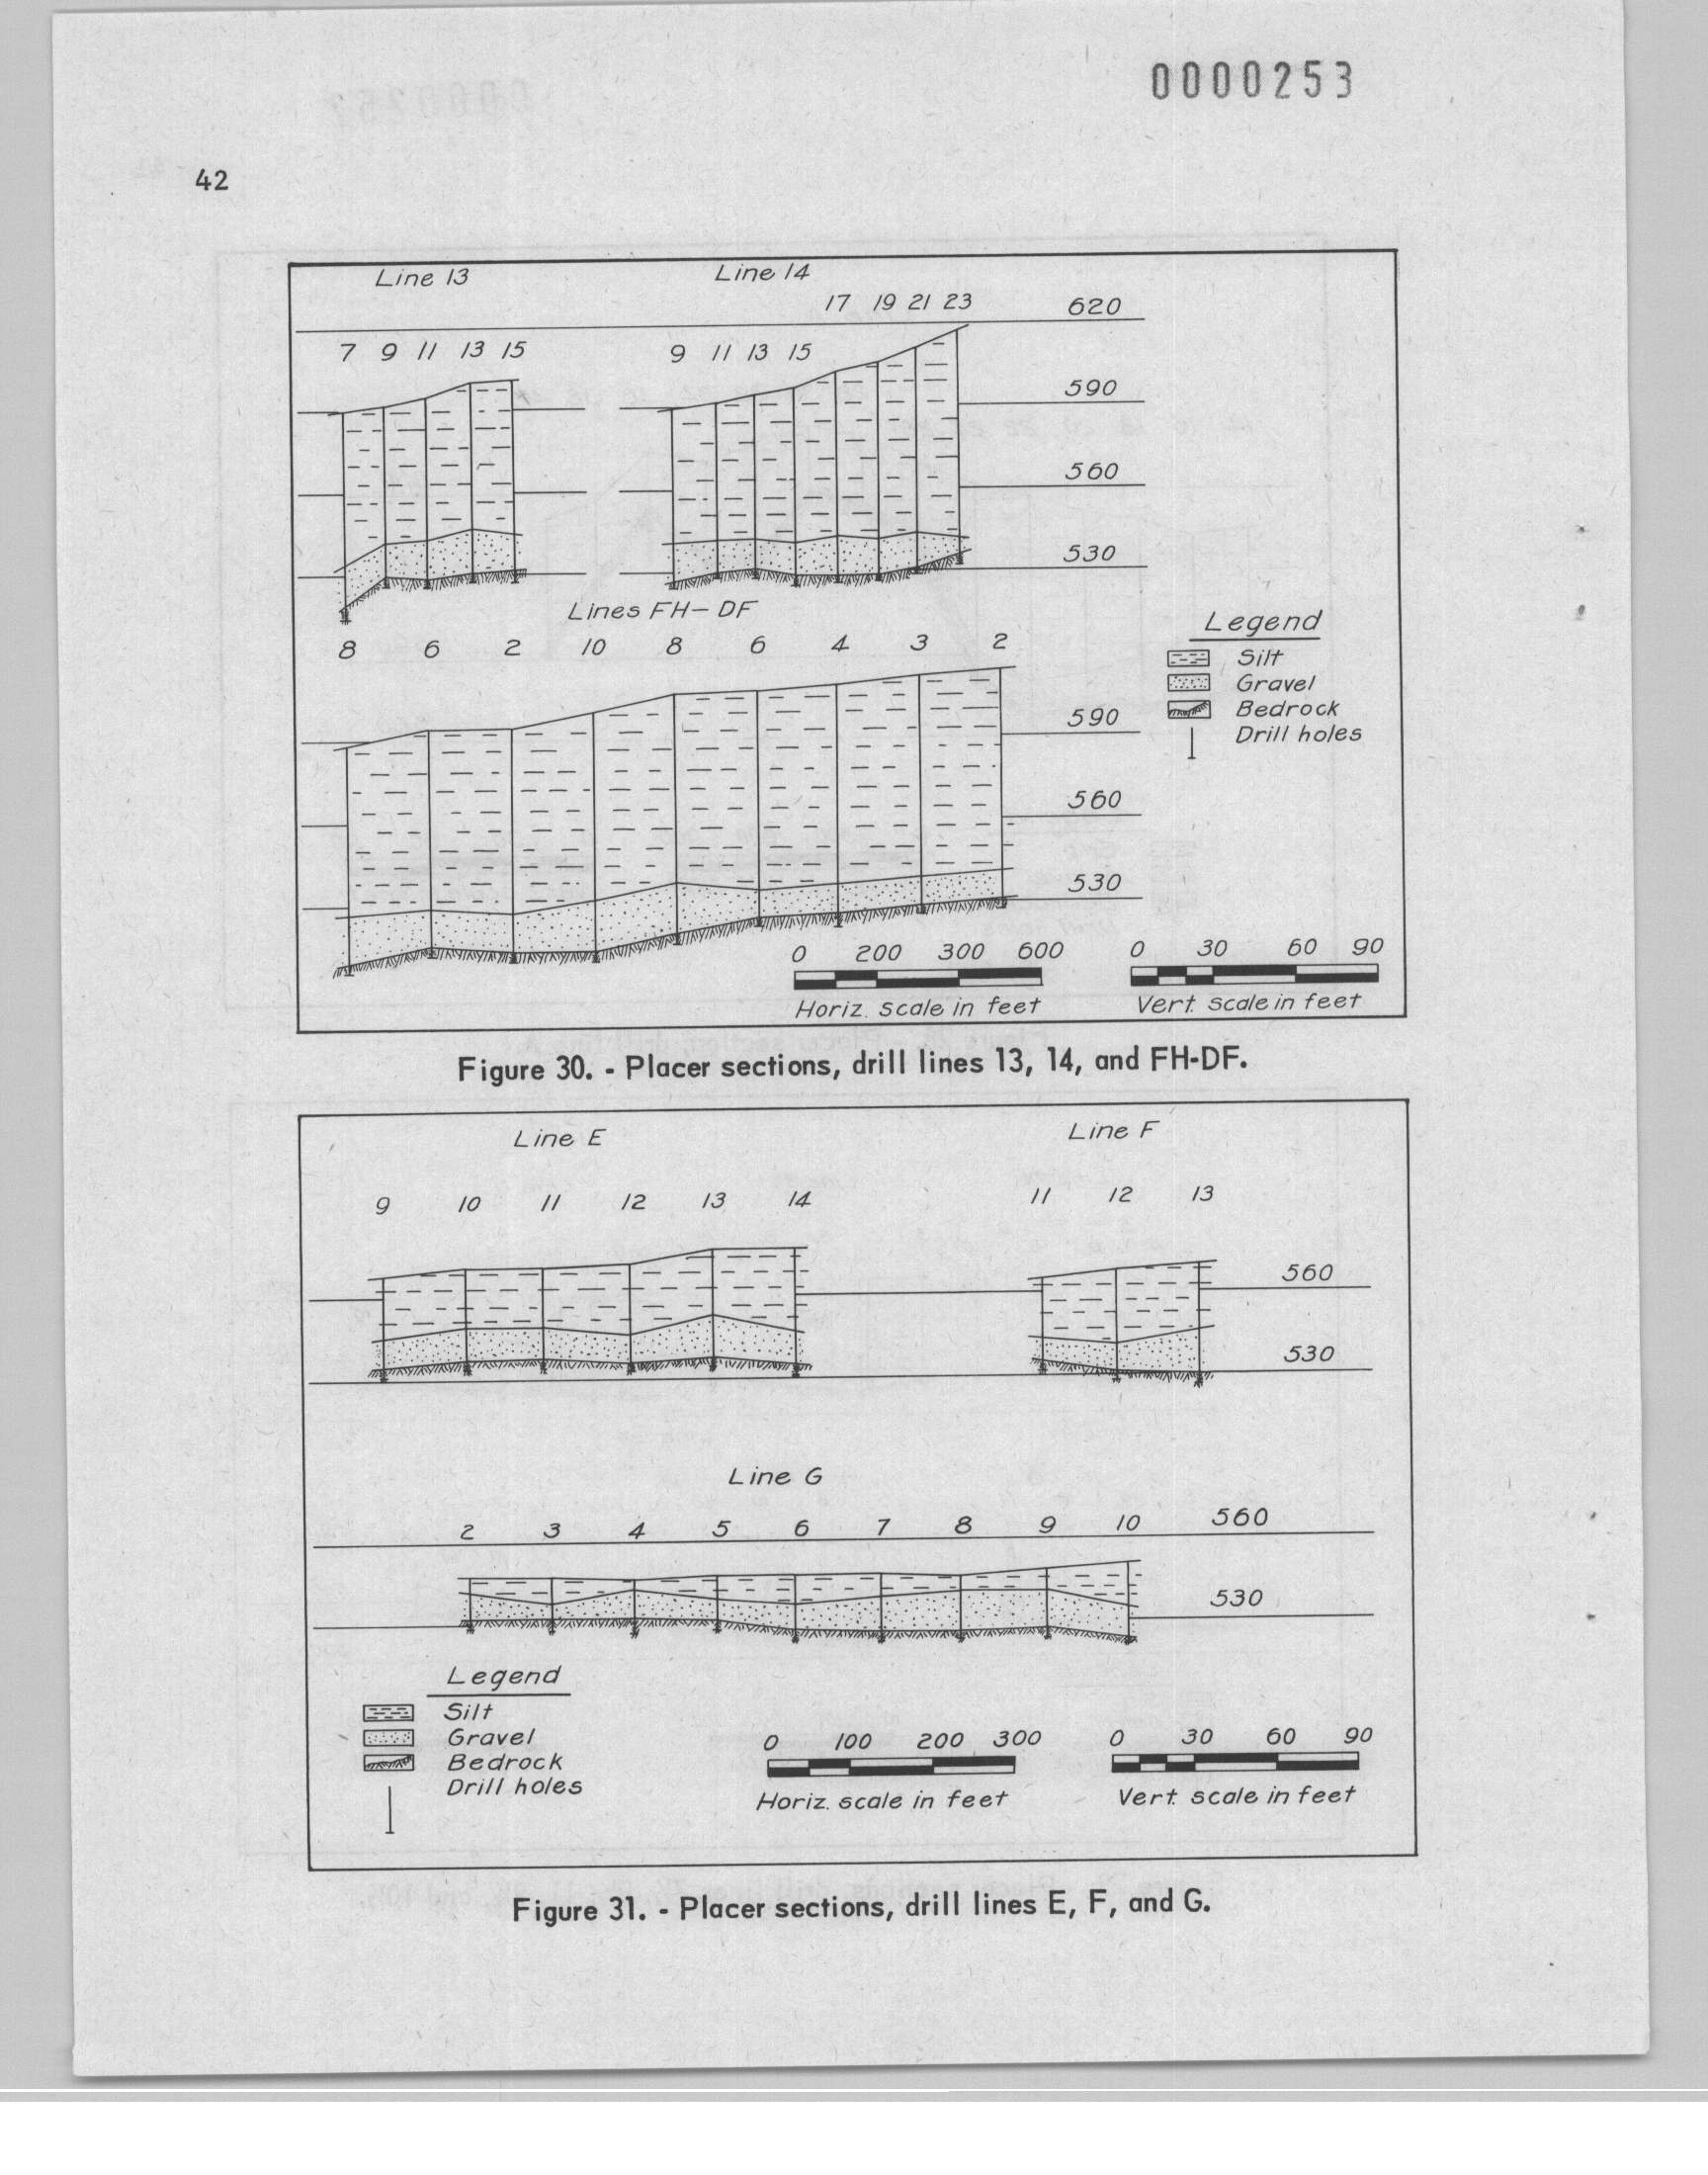 0000253
42
Line 13
Line 14
17 19 21 23
620
7 9 11 13 15
9 11 13 15
590
560
530
Lines FH-DF
8 6 2 10 8 6 4 3 2
590
560
530
Legend
Silt
Gravel
Bedrock
Drill holes
0 200 300 600
Horiz. scale in feet
0 30 60 90
Vert. scale in feet
Figure 30. - Placer sections, drill lines 13, 14, and FH-DF.
Line E
Line F
9 10 11 12 13 14
11 12 13
560
530
Line G
2 3 4 5 6 7 8 9 10
560
530
Legend
Silt
Gravel
Bedrock
Drill holes
0 100 200 300
Horiz. scale in feet
0 30 60 90
Vert. scale in feet
Figure 31. - Placer sections, drill lines E, F, and G.